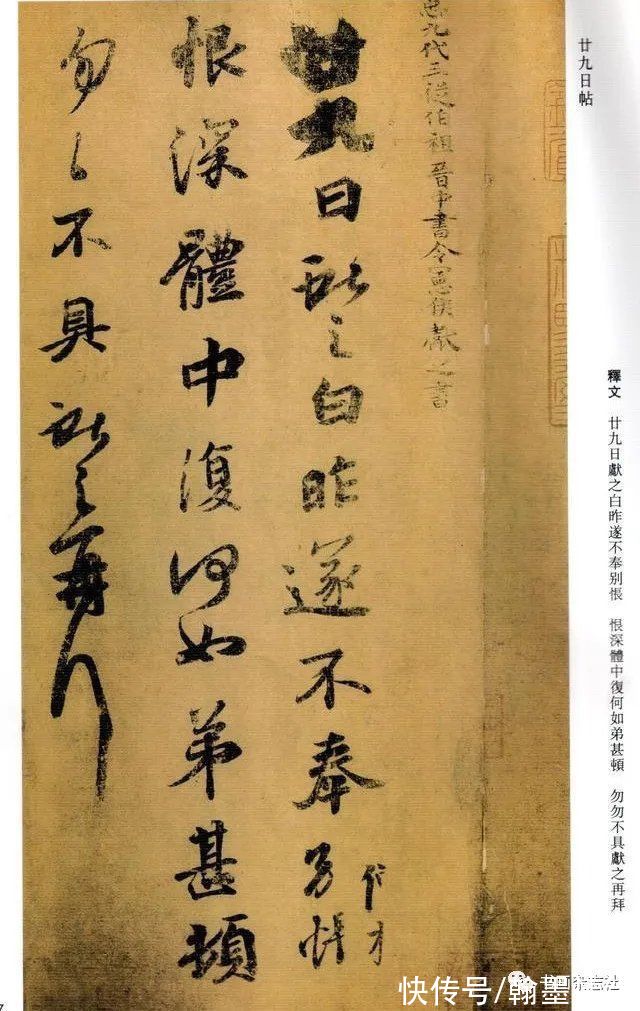 廿九日帖
釋文　廿九日獻之白昨遂不奉别悵　恨深體中復何如弟甚頓　勿勿不具獻之再拜
九代三從伯祖晉中書令憲侯獻之書
廿九日獻之白昨遂不奉别悵
恨深體中復何如弟甚頓
勿勿不具獻之再拜
书画杂志社
快传号/翰墨